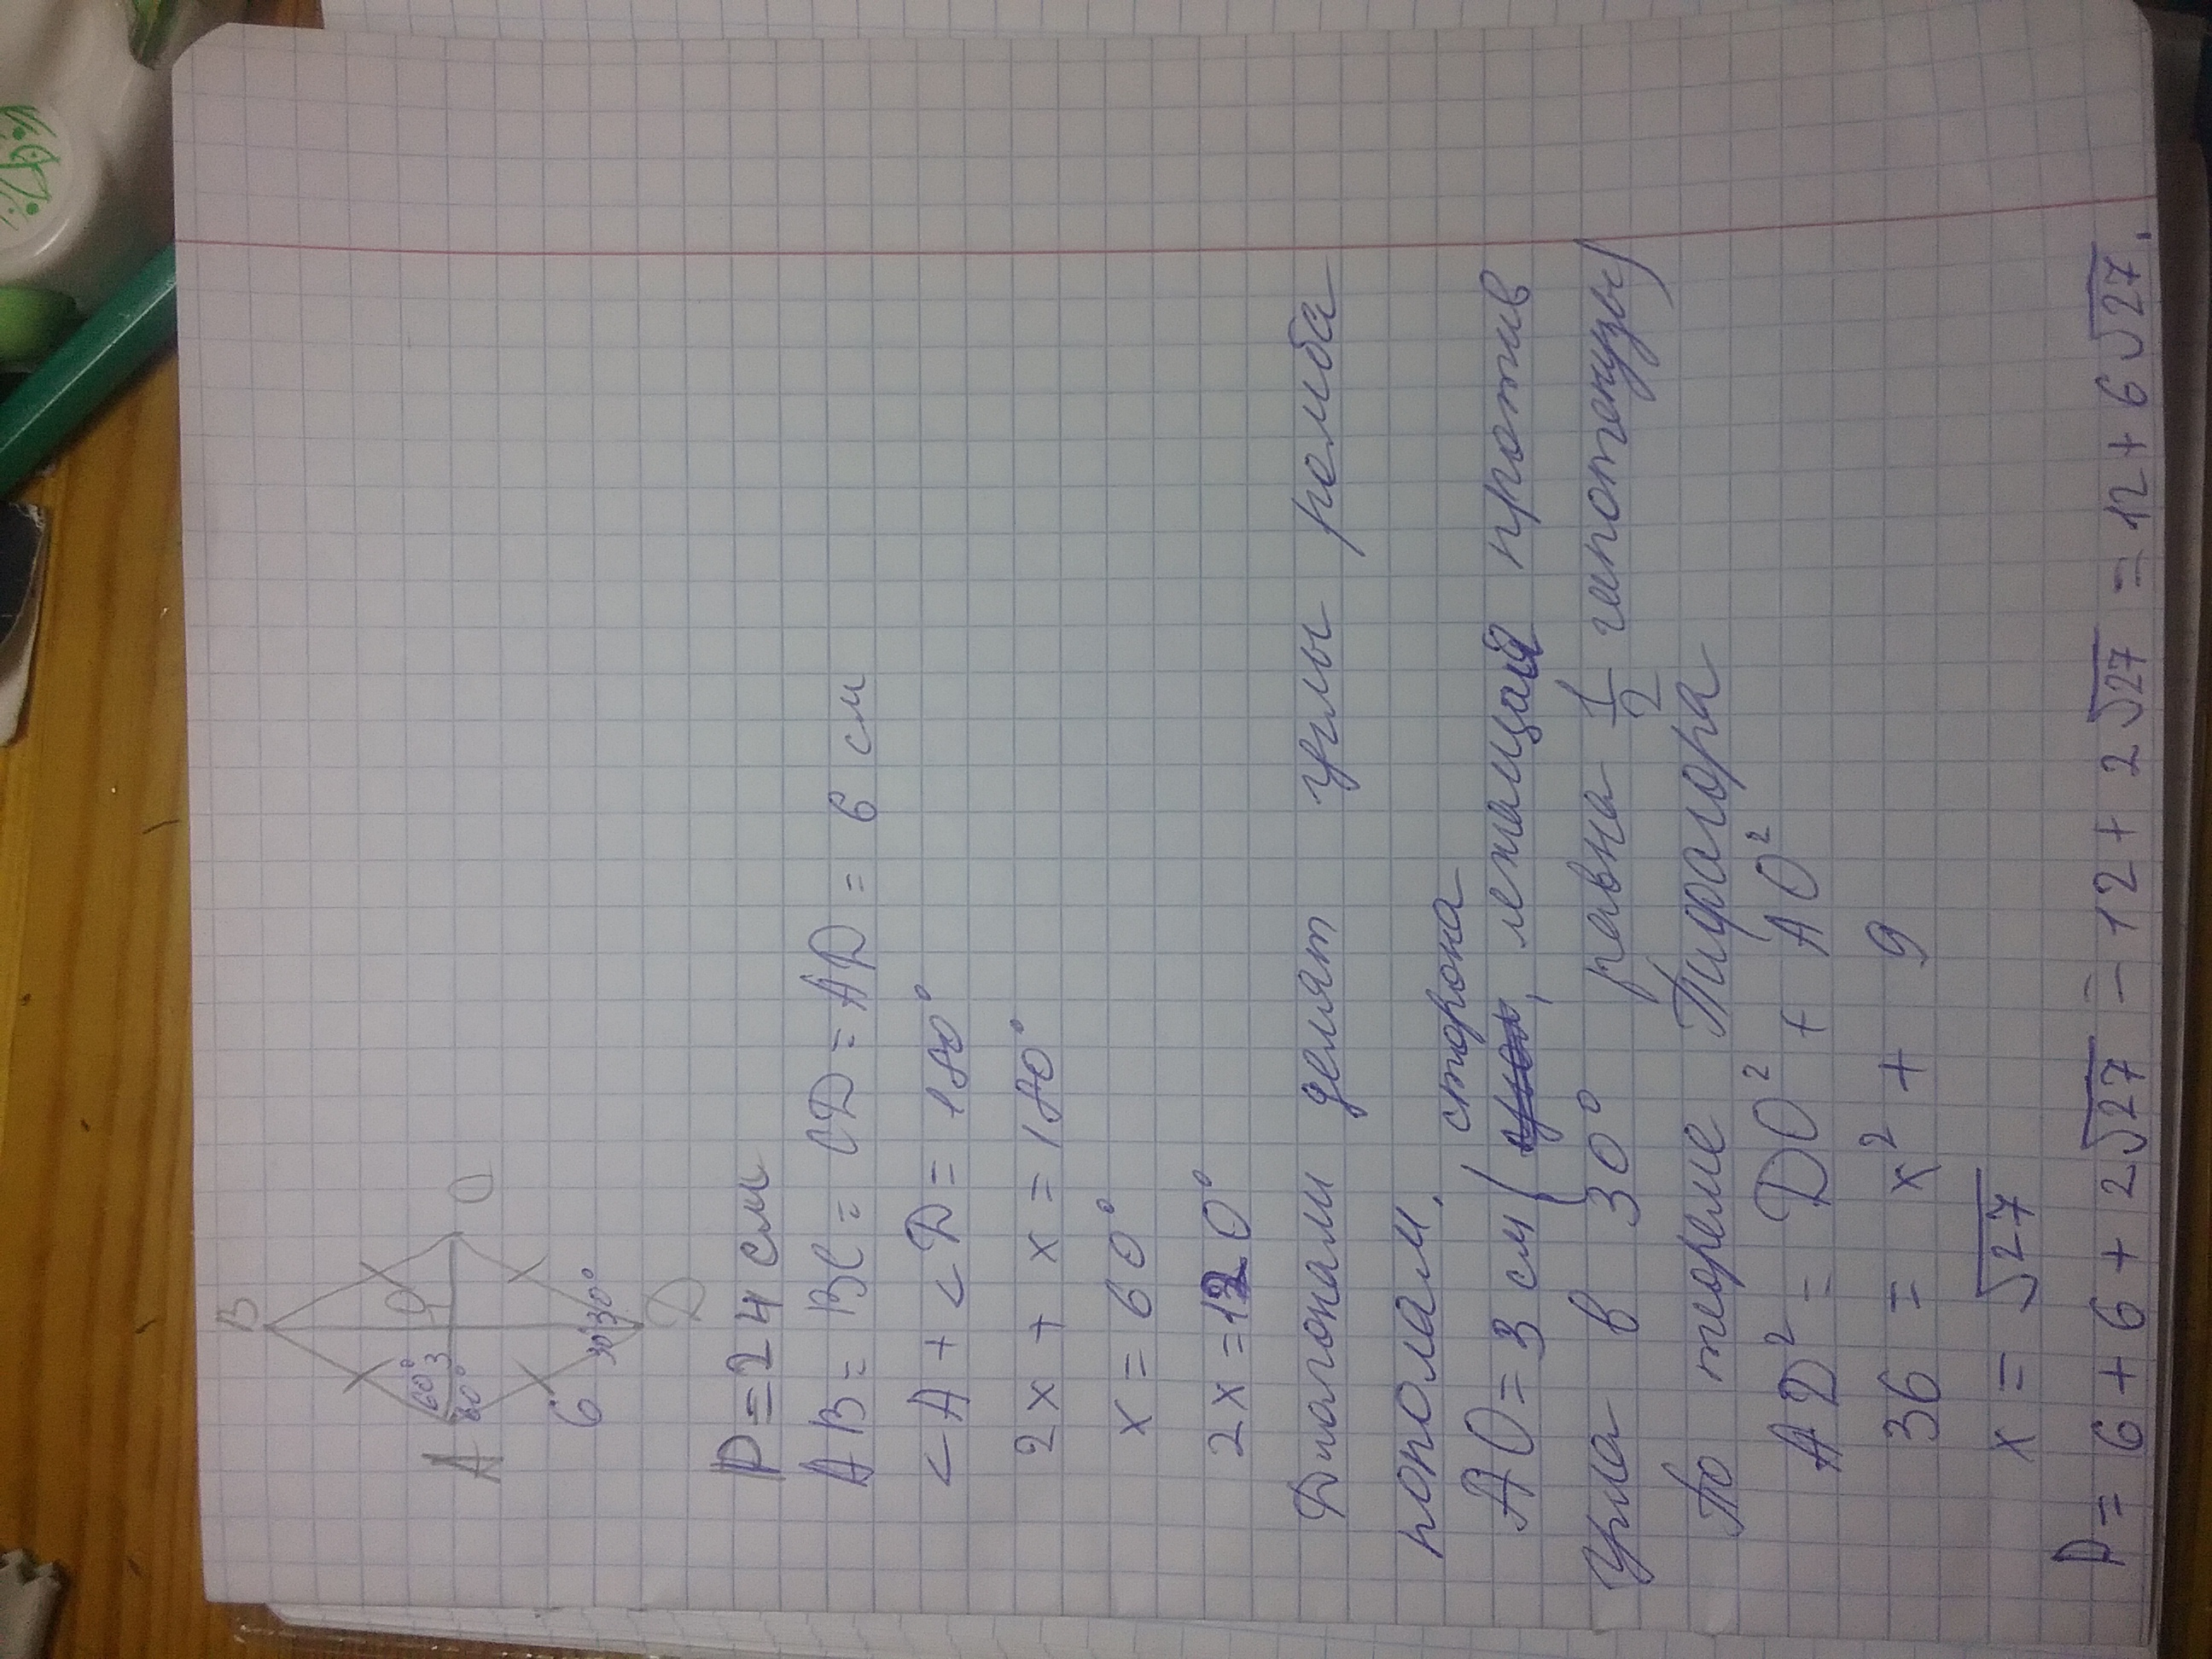 B
A 60° 3 O C
60°
6 30° 30°
D
P = 24 см
AB = BC = CD = AD = 6 см
<A + <D = 180°
2x + x = 180°
x = 60°
2x = 120°
Диагонали делят углы ромба
пополам.
сторона
AO = 3 см (, лежащая против
угла в 30° равна 1/2 гипотенузы)
По теореме Пифагора
AD² = DO² + AO²
36 = x² + 9
x = √27
P = 6 + 6 + 2√27 = 12 + 2√27 = 12 + 6√27.